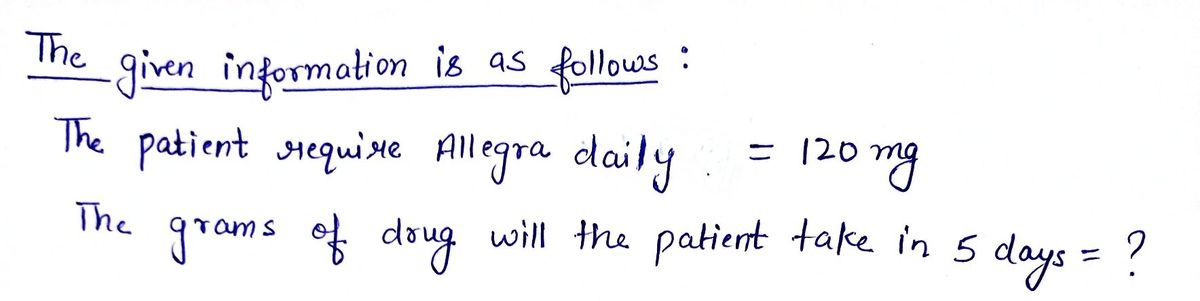 The given information is as follows :
The patient require Allegra daily . = 120 mg
The grams of drug will the patient take in 5 days = ?